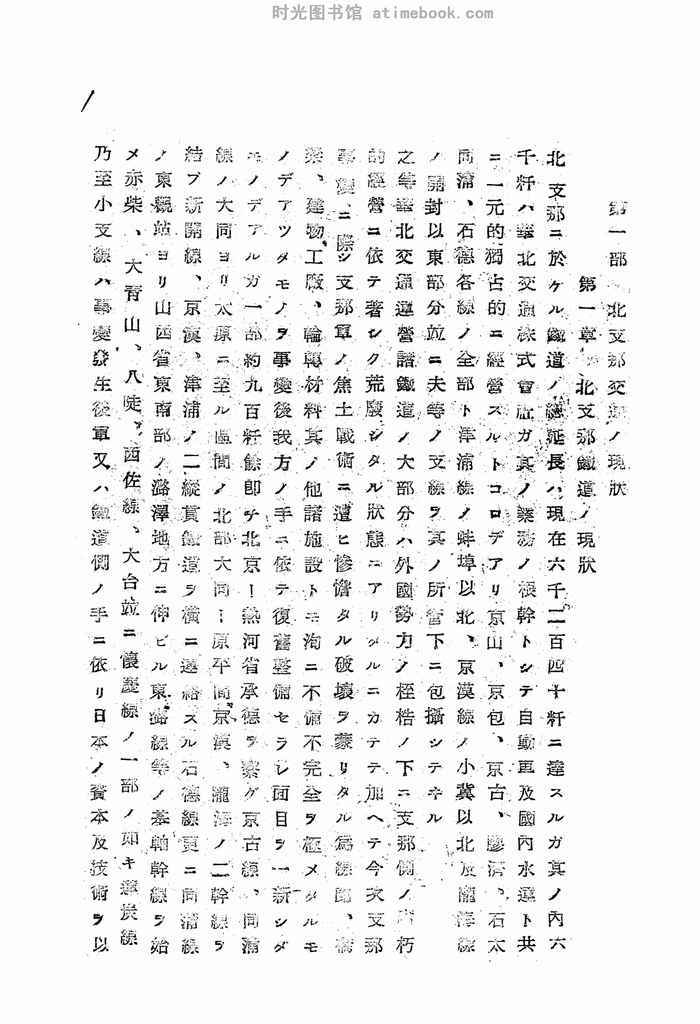 时光图书馆 atimebook.com
第一部 北支那交通ノ現狀
第一章 北支那鐵道ノ現狀
北支那ニ於ケル鐵道ノ總延長ハ現在六千二百四十粁ニ達スルガ其ノ內六
千粁ハ華北交通株式會社ガ其ノ業務ノ根幹トシテ自動車及國內水運ト共
ニ一元的獨占的ニ經營スルトコロデアリ京山、京包、京古、膠濟、石太
同浦、石德各線ノ全部ト津浦線ノ蚌埠以北、京漢線ノ小冀以北及隴海線
ノ開封以東部分竝ニ夫等ノ支線ヲ其ノ所管下ニ包攝シテヰル
之等華北交通運營諸鐵道ノ大部分ハ外國勢力ノ桎梏ノ下ニ支那側ノ 朽
的經營ニ依テ著シク荒廢シタル狀態ニアリタルニカテテ加ヘテ今次支那
事變ニ際シ支那軍ノ焦土戰術ニ遭ヒ慘憺タル破壞ヲ蒙リタル爲線路、橋
梁、建物、工廠、輪轉材料其ノ他諸施設トモ洵ニ不備不完全ヲ極メタルモ
ノデアツタモノヲ事變後我方ノ手ニ依テ復舊整備セラレ面目ヲ一新シタ
モノデアルガ一部約九百粁餘卽チ北京ー熱河省承德ヲ繋グ京古線、同浦
線ノ大同ヨリ太原ニ至ル區間ノ北部大同ー原平間京漢、隴海ノ二幹線ヲ
結ブ新開線、京漢、津浦ノ二縱貫鐵道ヲ橫ニ連絡スル石德線更ニ同浦線
ノ東觀站ヨリ山西省東南部ノ潞澤地方ニ伸ビル東潞線等ノ基軸幹線ヲ始
メ赤柴、大靑山、八陡、西佐線、大台竝ニ懷慶線ノ一部ノ如キ運炭線
乃至小支線ハ事變發生後軍又ハ鐵道側ノ手ニ依リ日本ノ資本及技術ヲ以